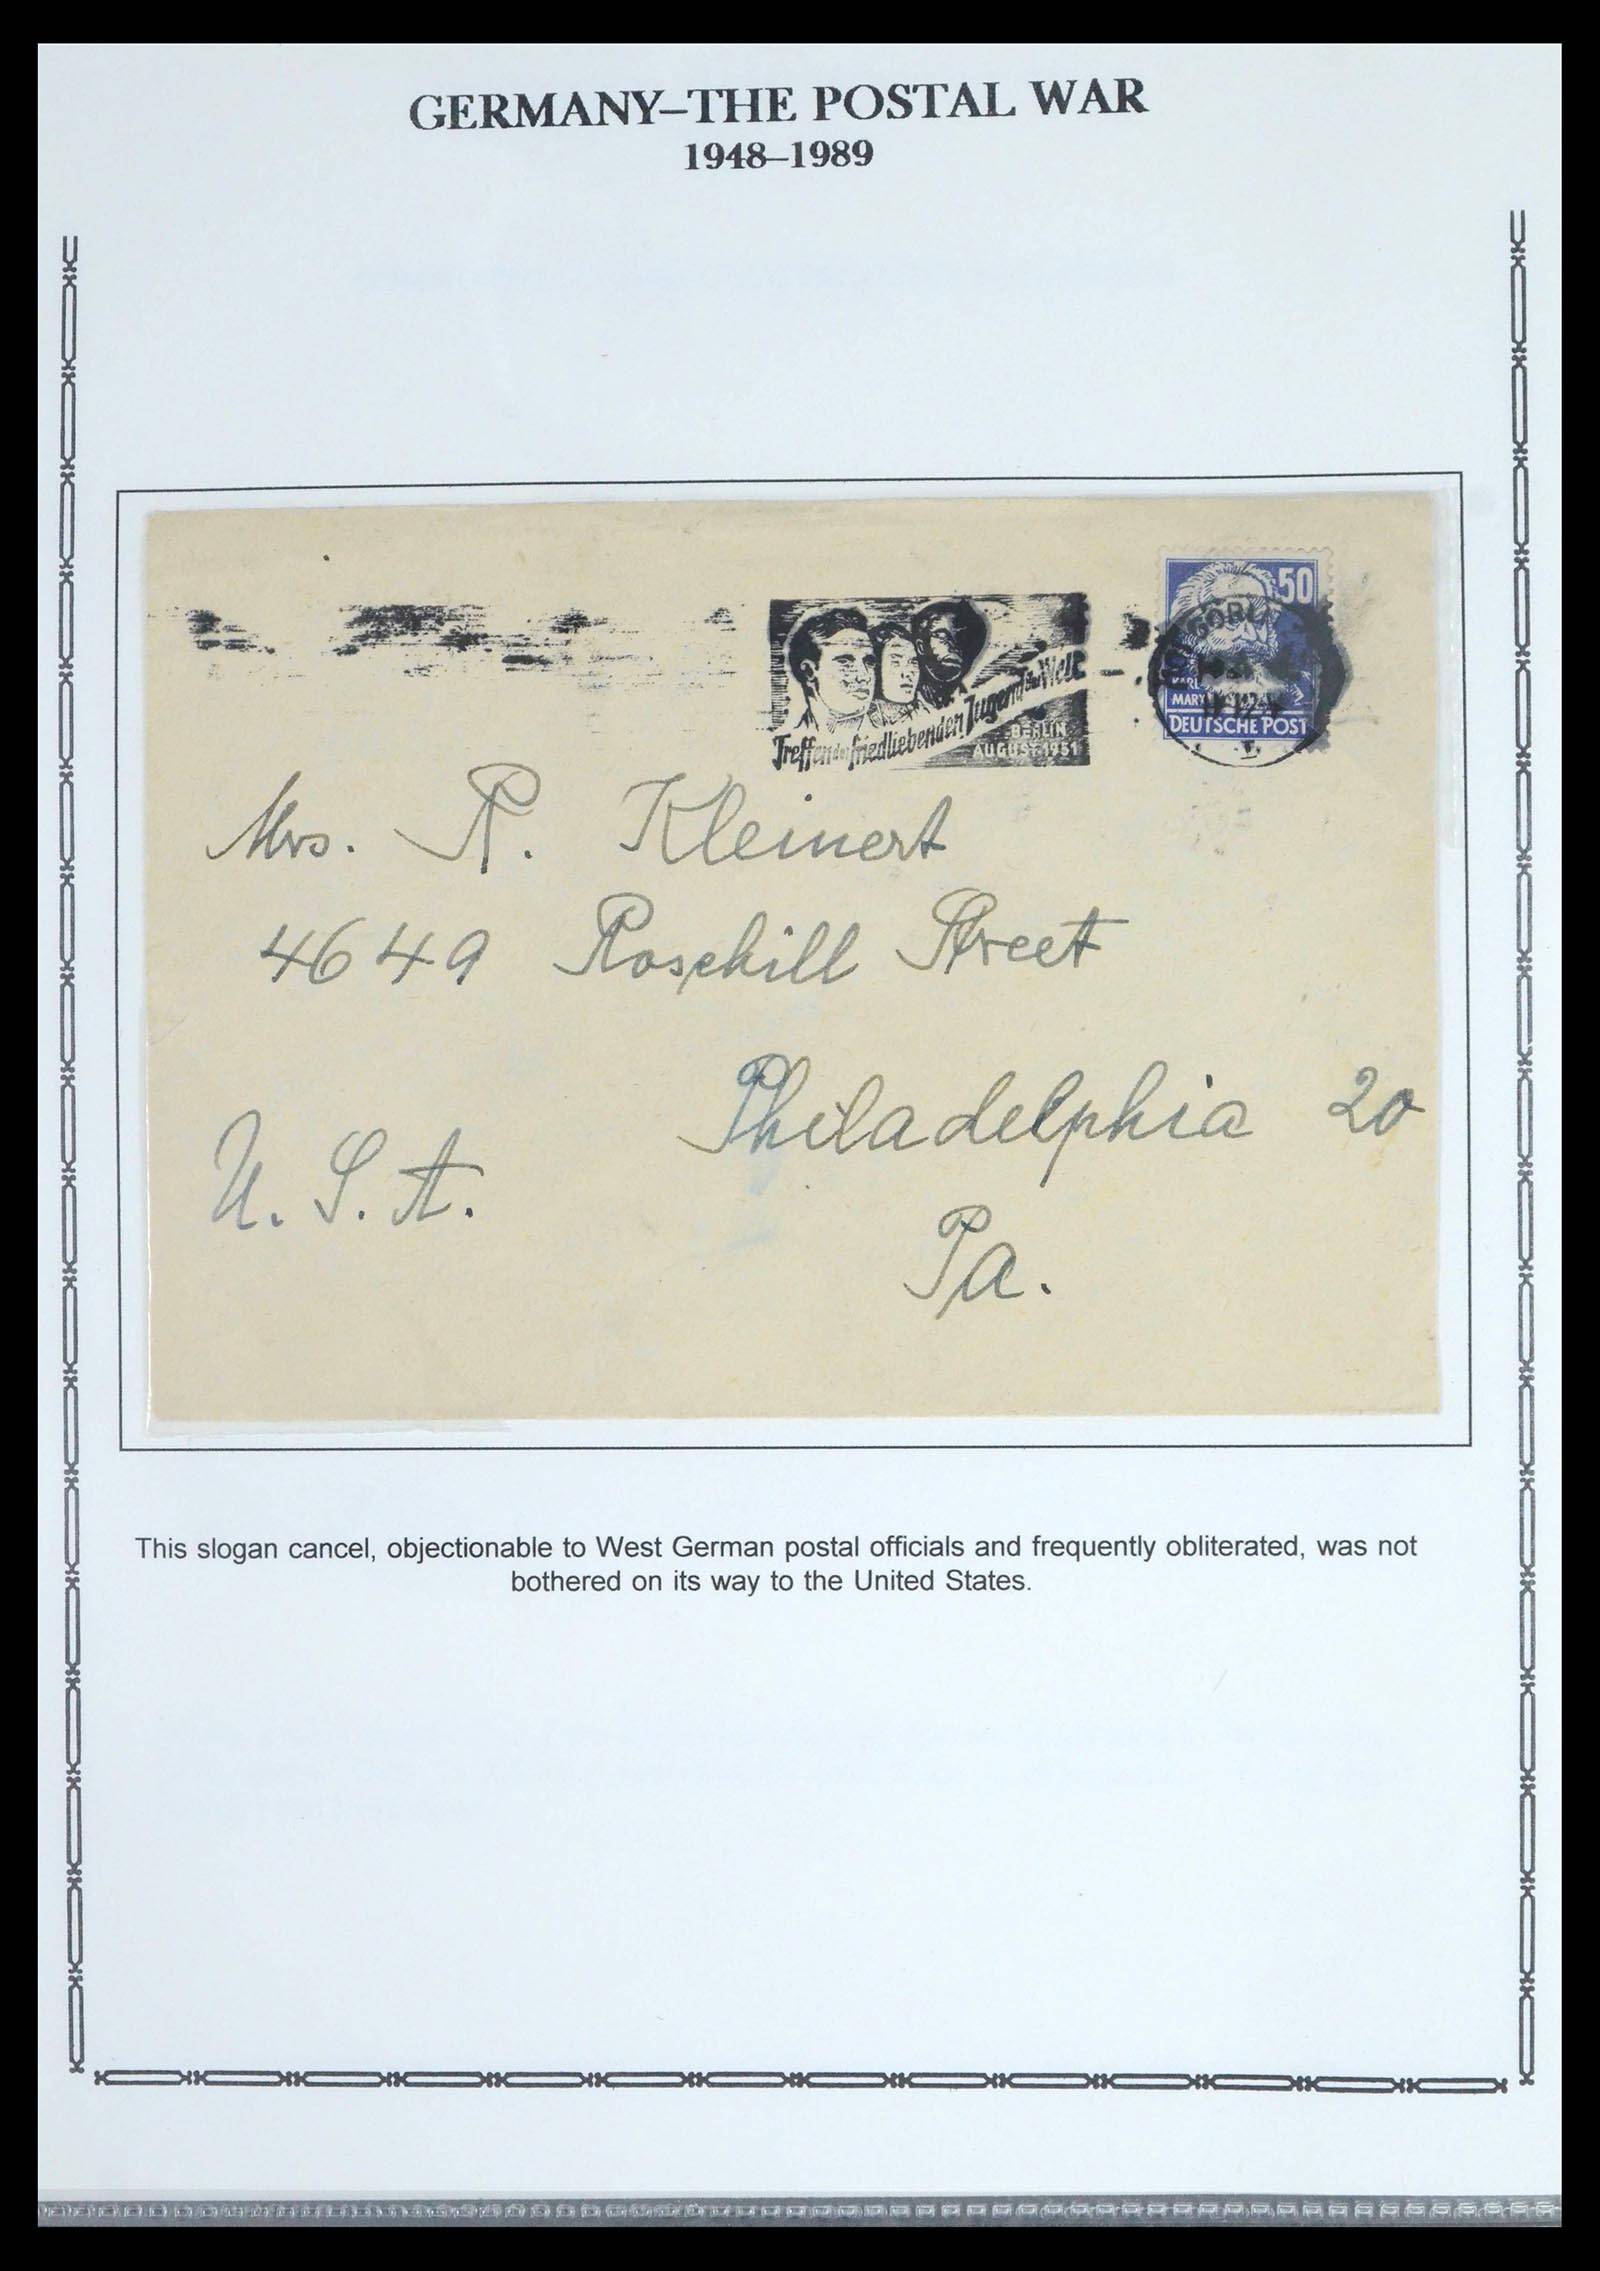 GERMANY–THE POSTAL WAR
1948–1989
50
KARL
MARX
DEUTSCHE POST
Treffen der friedliebenden Jugend der Welt
BERLIN
AUGUST 1951
Mrs. R. Kleinert
4649 Rosehill Street
Philadelphia 20
U. S. A.
Pa.
This slogan cancel, objectionable to West German postal officials and frequently obliterated, was not
bothered on its way to the United States.